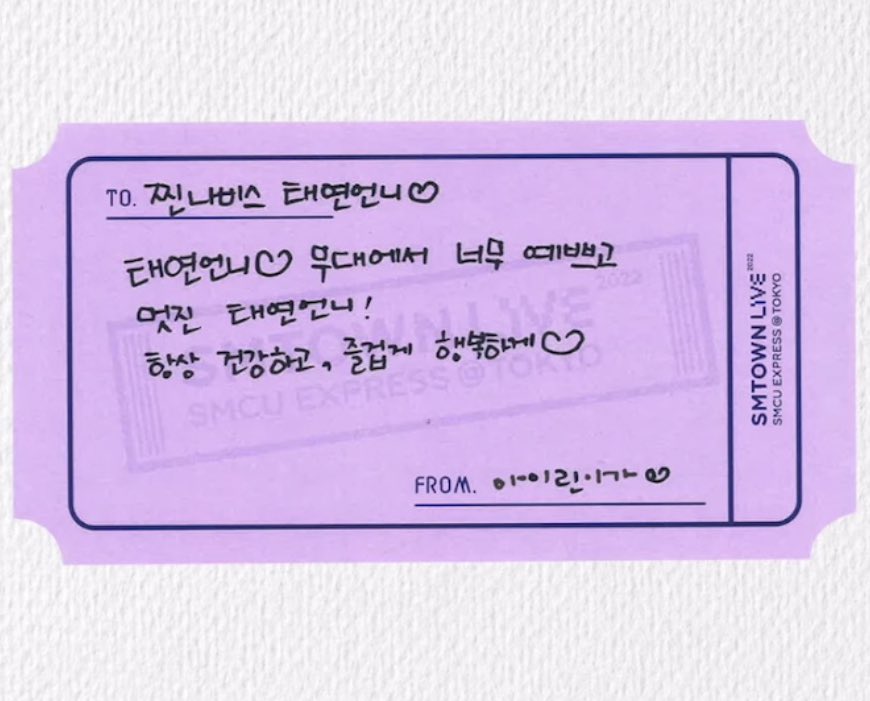 TO. 찐나비스 태연언니♡
태연언니♡ 무대에서 너무 예쁘고
멋진 태연언니!
항상 건강하고, 즐겁게 행복하게♡
FROM. 아이린이가♡
SMTOWN LIVE 2022
SMCU EXPRESS @TOKYO
SMTOWN LIVE 2022
SMCU EXPRESS @TOKYO